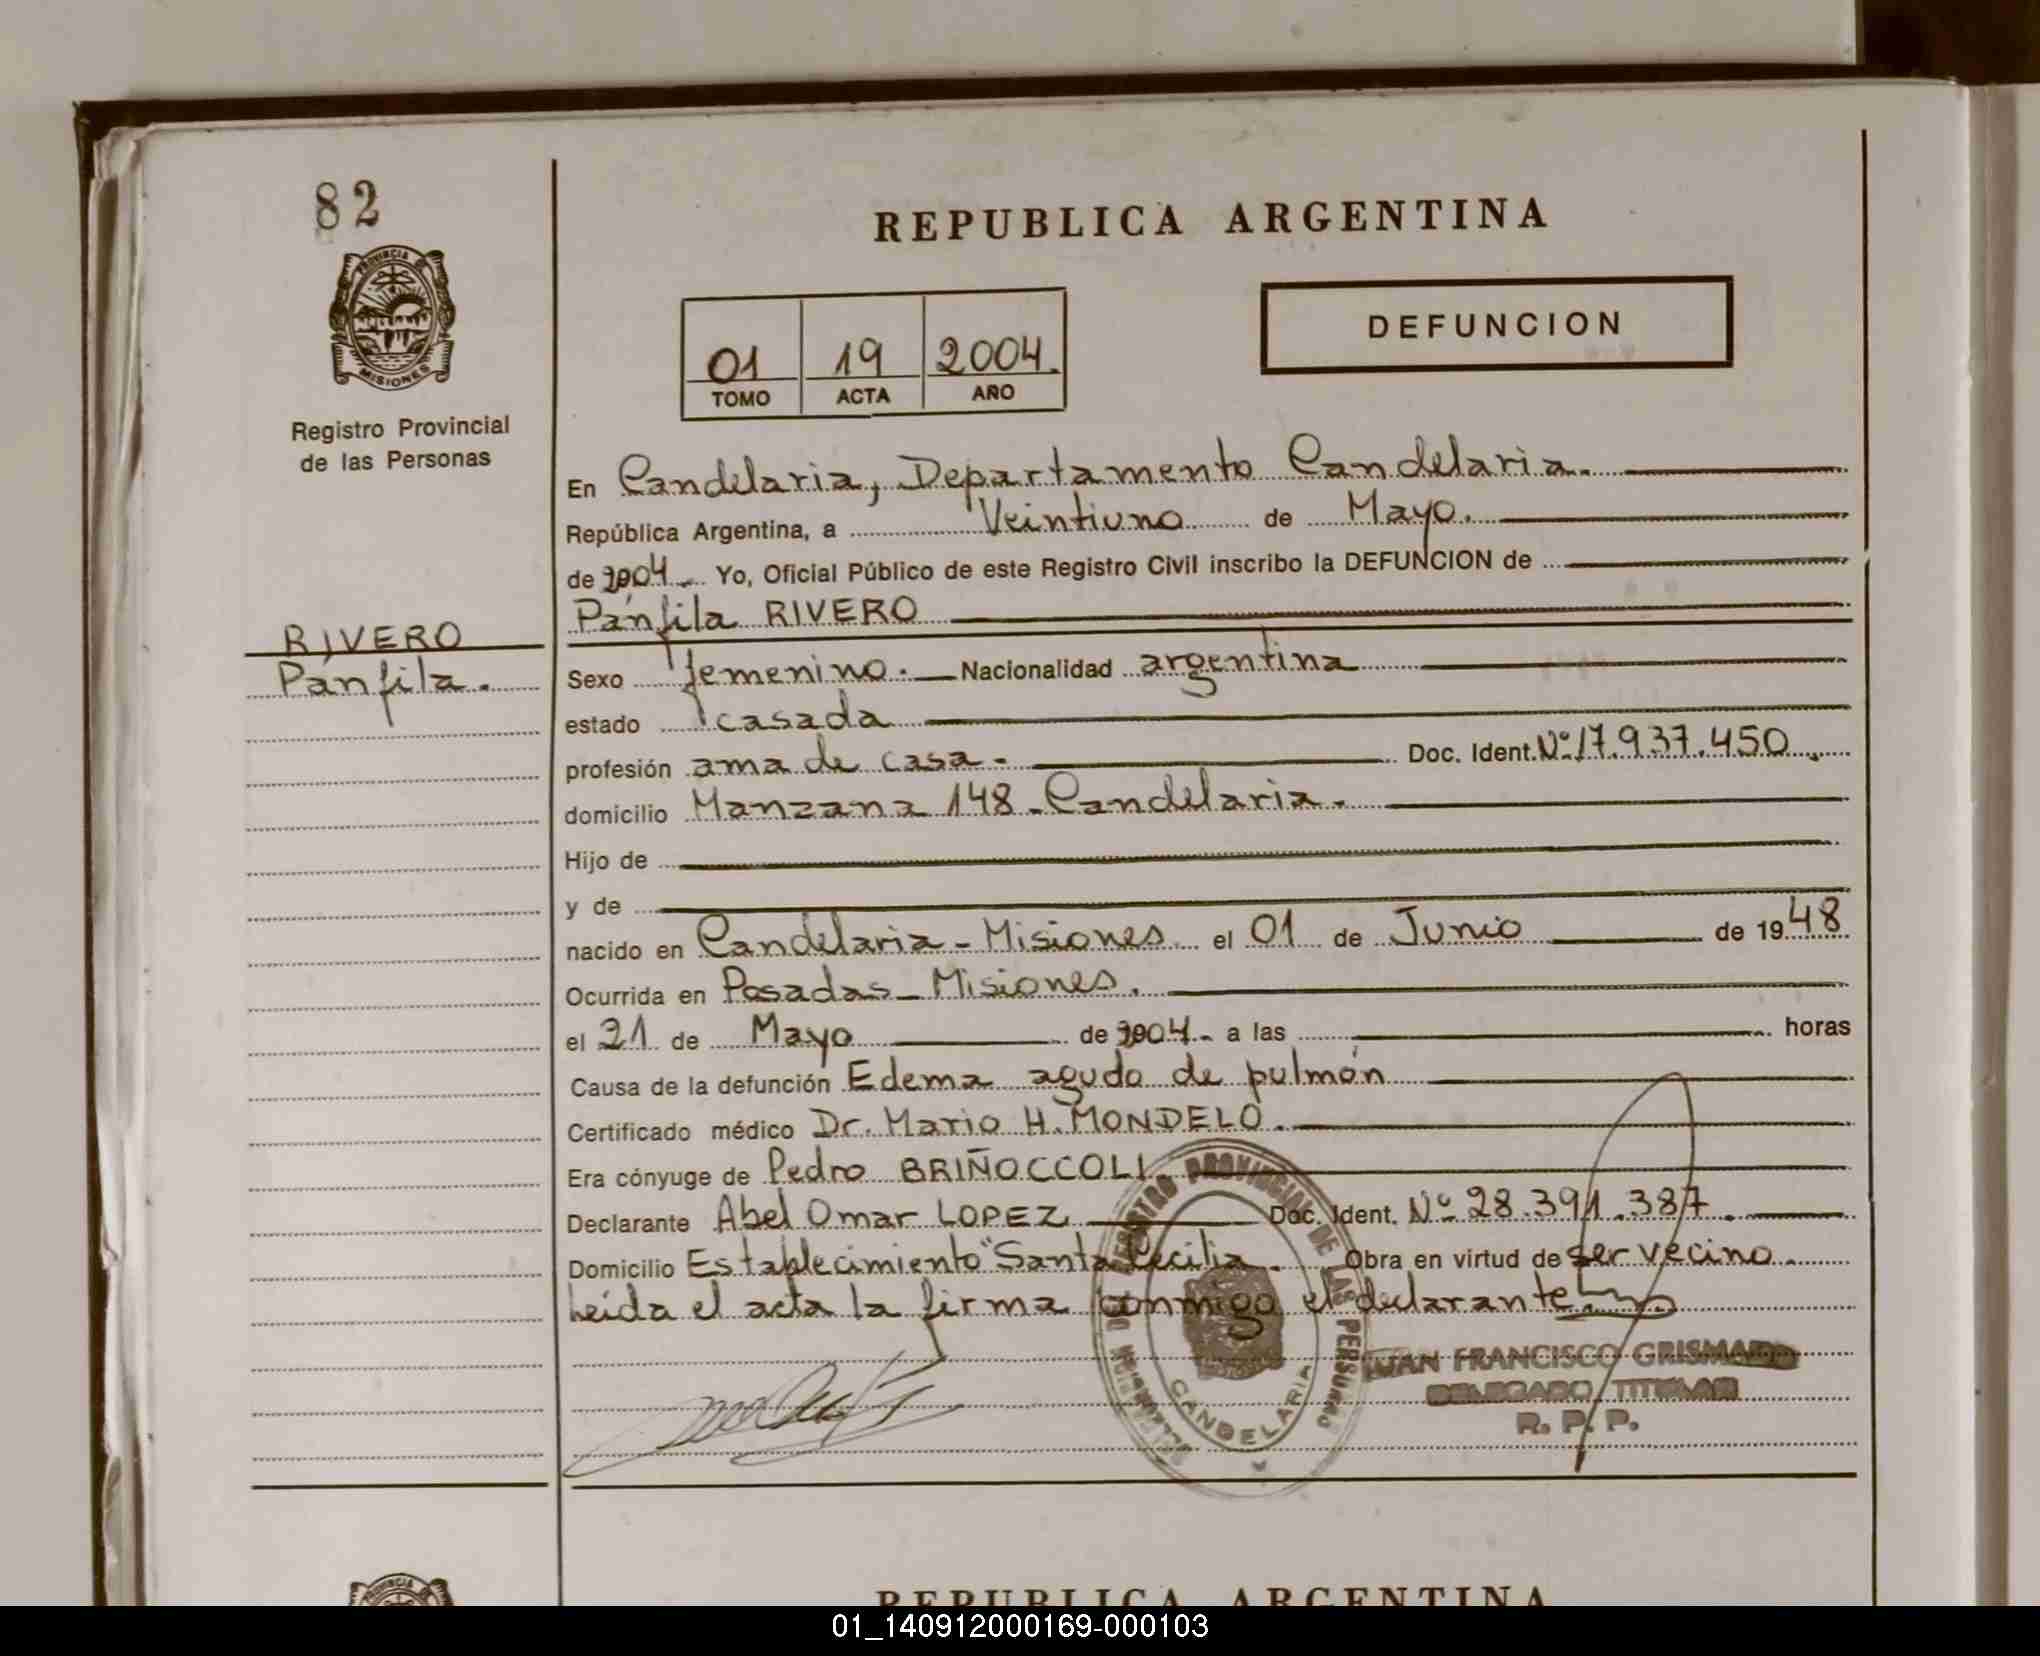 82
REPUBLICA ARGENTINA
PROVINCIA DE
MISIONES
Registro Provincial
de las Personas
01 19 2004.
TOMO ACTA AÑO
DEFUNCION
En Candelaria, Departamento Candelaria.
República Argentina, a Veintiuno de Mayo.
de 2004. Yo, Oficial Público de este Registro Civil inscribo la DEFUNCION de
Pánfila RIVERO
RIVERO
Pánfila.
Sexo femenino. Nacionalidad argentina
estado casada
profesión ama de casa. Doc. Ident. Nº 17.937.450
domicilio Manzana 148 - Candelaria.
Hijo de
y de
nacido en Candelaria - Misiones. el 01 de Junio de 1948
Ocurrida en Posadas - Misiones.
el 21 de Mayo de 2004. a las horas
Causa de la defunción Edema agudo de pulmón
Certificado médico Dr. Mario H. MONDELO.
Era cónyuge de Pedro BRIÑOCCOLI
Declarante Abel Omar LOPEZ Doc. Ident. Nº 28.391.387.
Domicilio Establecimiento "Santa Cecilia. Obra en virtud de ser vecino.
Leída el acta la firma conmigo el declarante
PROVINCIAL DE LAS PERSONAS
CANDELARIA
JUAN FRANCISCO
DELEGADO TITULAR
R. P. P.
REPUBLICA ARGENTINA
01_140912000169-000103